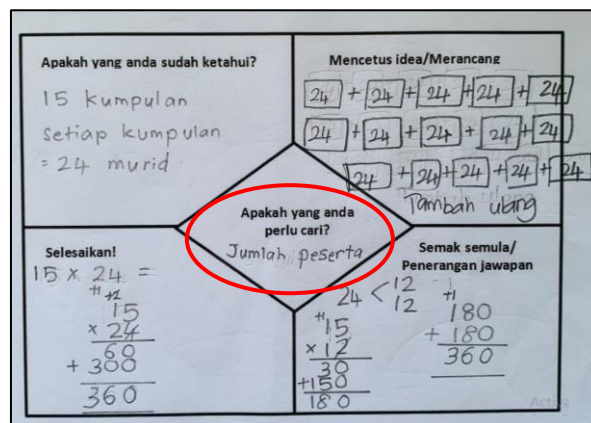 Apakah yang anda sudah ketahui?
15 kumpulan
setiap kumpulan
= 24 murid
Mencetus idea/Merancang
24 + 24 + 24 + 24 + 24
24 + 24 + 24 + 24 + 24
24 + 24 + 24 + 24 + 24
Tambah ulang
Apakah yang anda
perlu cari?
Jumlah peserta
Selesaikan!
15 x 24 =
+1 +2
15
x 24
60
+ 300
360
Semak semula/
Penerangan jawapan
24 < 12
12
+1
15
x 12
30
+150
180
+1
180
+ 180
360